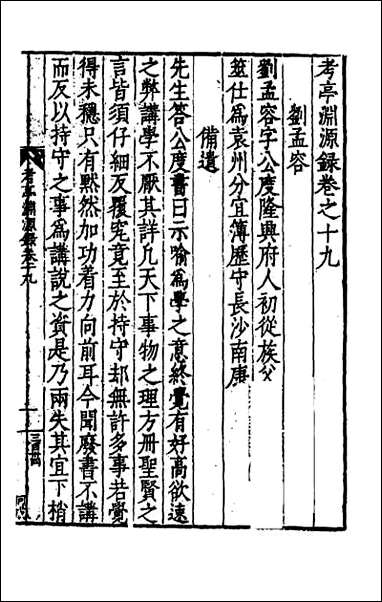 考亭淵源録卷之十九
劉孟容
劉孟容字公度隆興府人初從族父
筮仕爲袁州分宜簿歷守長沙南康
備遺
先生答公度書曰示喻爲學之意終覺有好高欲速
之弊講學不厭其詳凢天下事物之理方冊聖賢之
言皆須仔細反覆究竟至於持守却無許多事若覺
得未穩只有默然加功着力向前耳今聞廢書不講
而反以持守之事爲講說之資是乃兩失其宜下梢
考亭淵源録卷十九